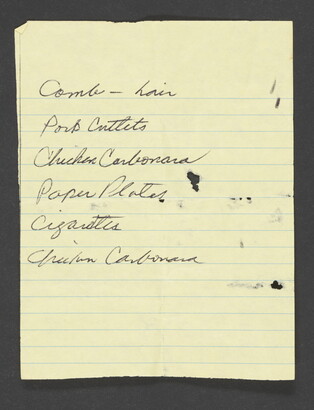 Comb - hair
Pork Cutlets
Chicken Carbonara
Paper Plates
Cigarettes
Chicken Carbonara